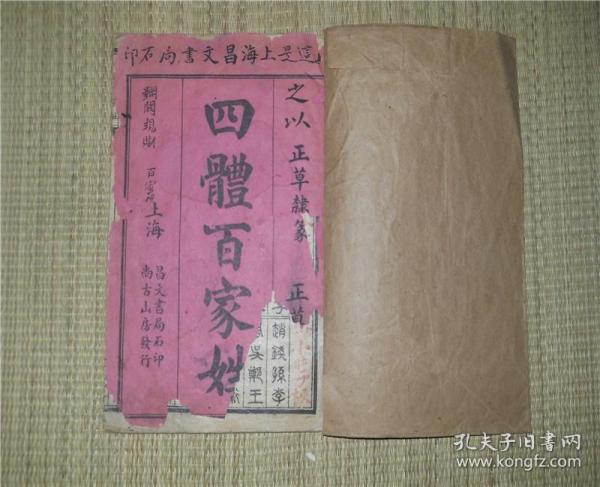 這是上海昌文書局石印
之以
正草隸篆
正草
四體百家姓
百家姓
上海
昌文書局石印
尚古山房發行
趙錢孫李
吳鄭王
孔夫子旧书网
www.kongfz.com